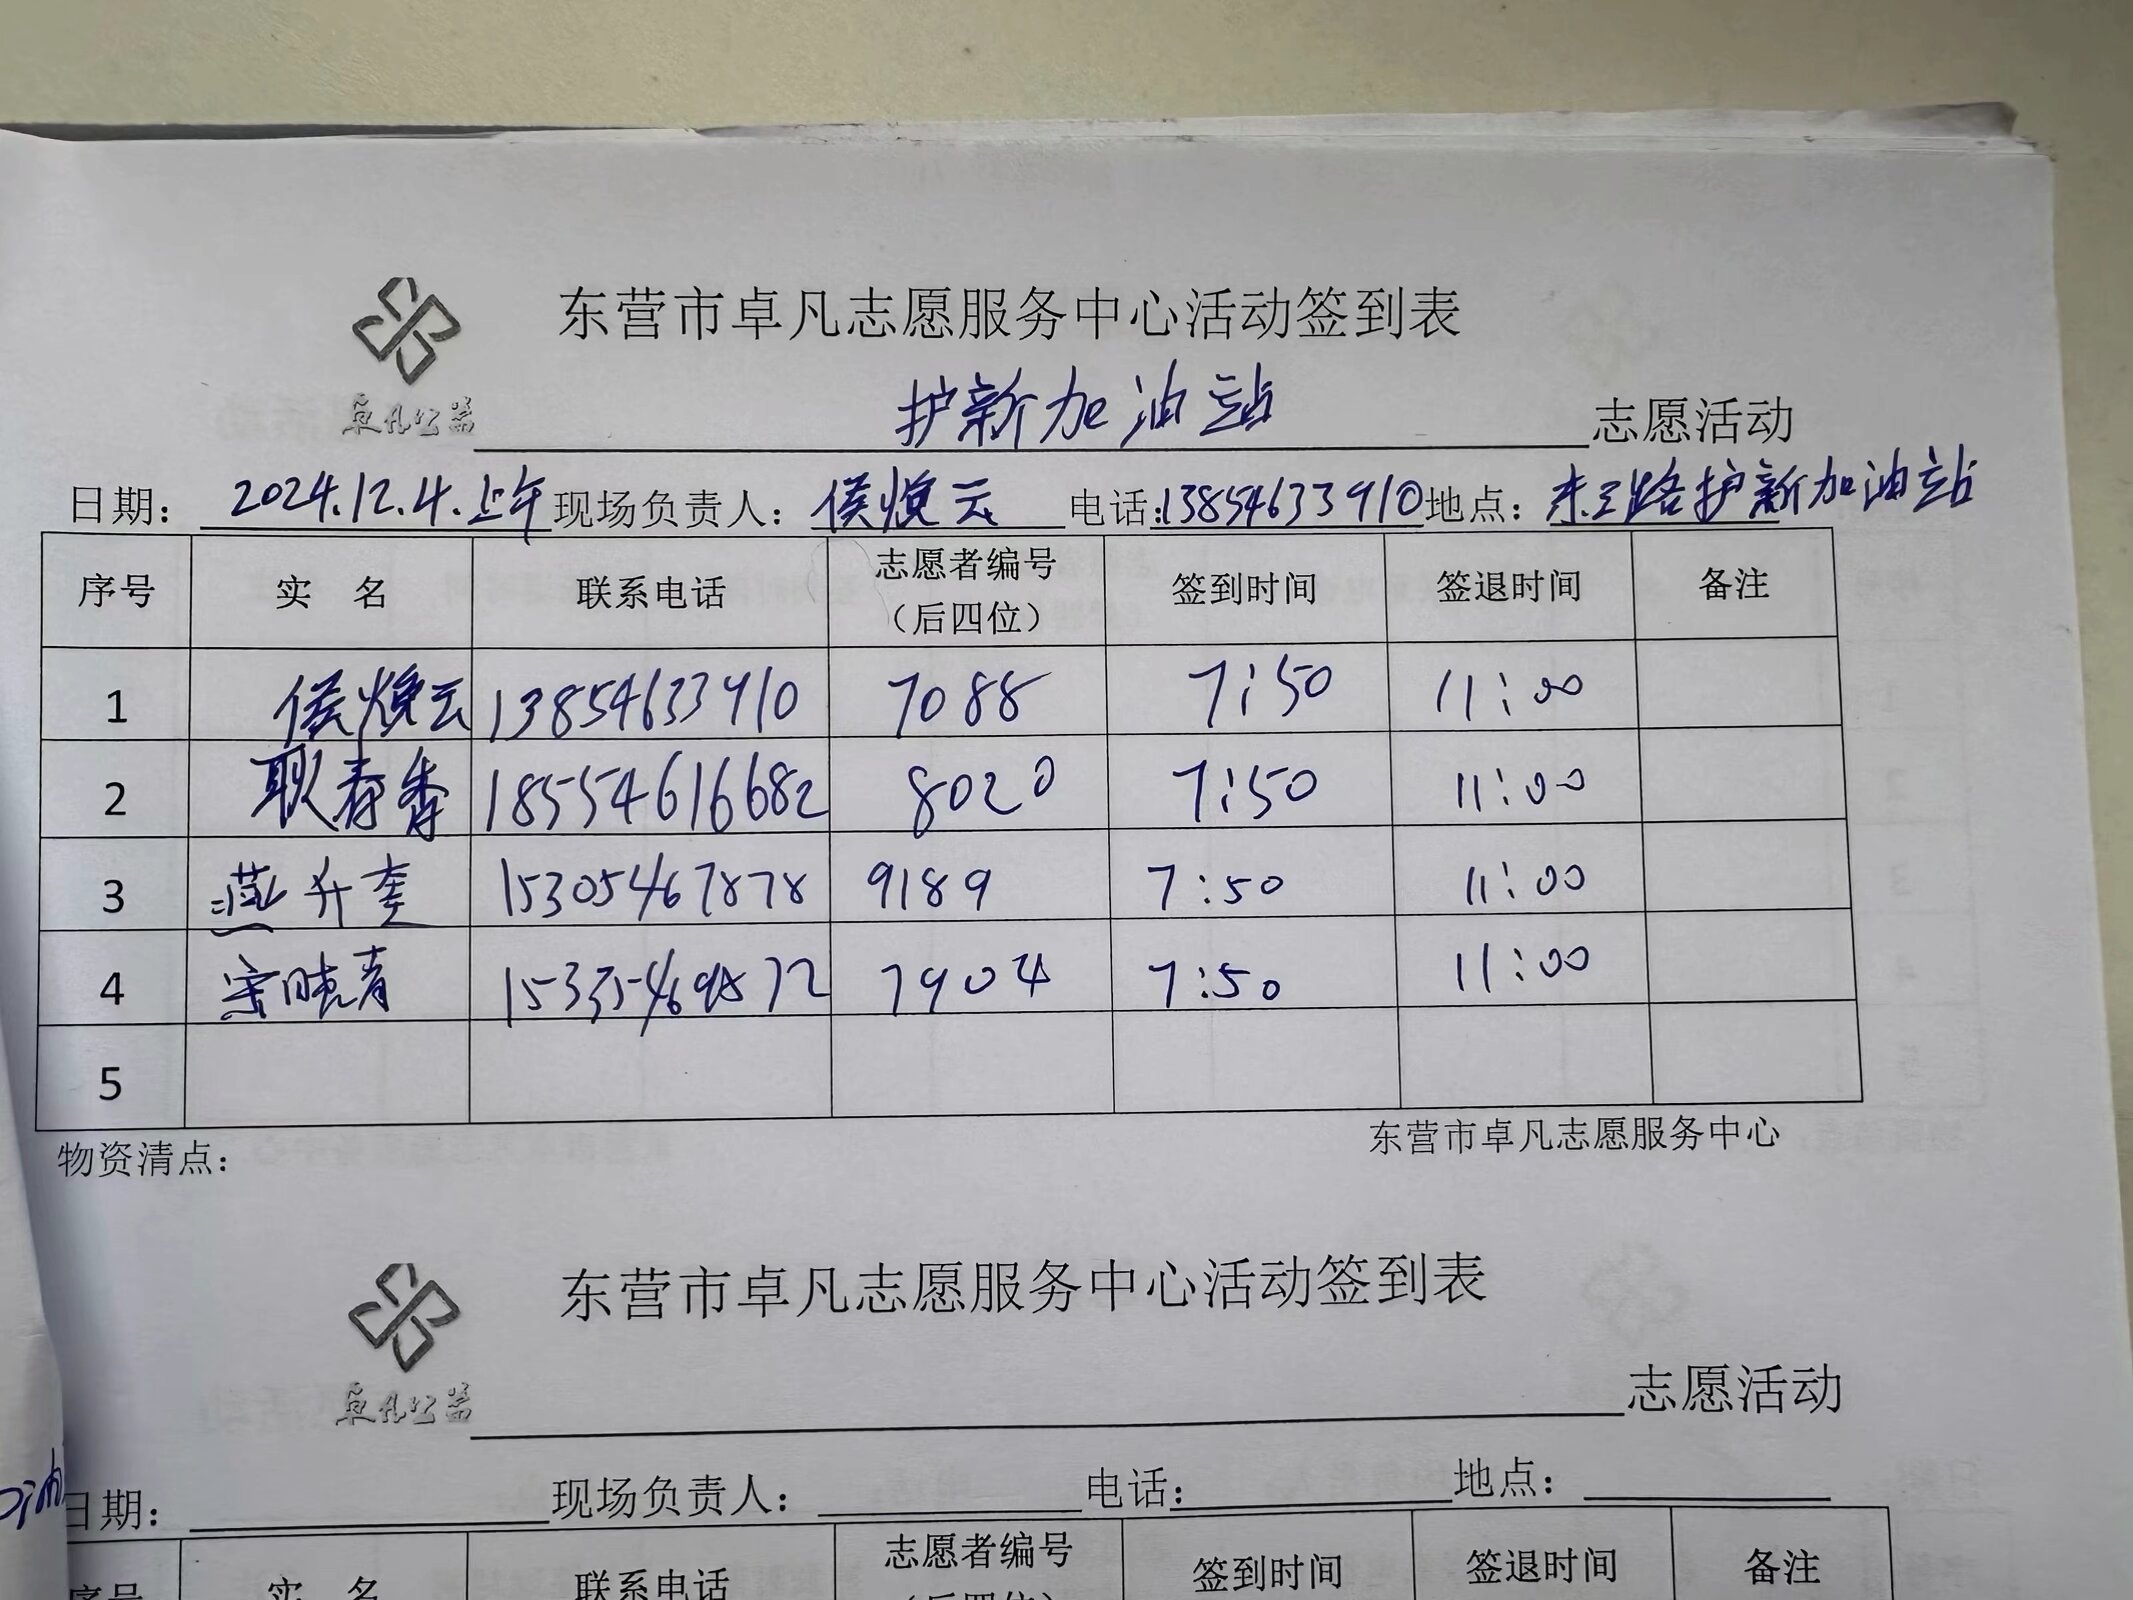 东营市卓凡志愿服务中心活动签到表
卓凡公益
护新加油站 志愿活动
日期: 2024.12.4.上午 现场负责人: 侯焕云 电话: 13854633910 地点: 东三路护新加油站
序号 实 名 联系电话 志愿者编号 (后四位) 签到时间 签退时间 备注
1 侯焕云 13854633910 7088 7:50 11:00
2 耿春香 18554616682 8020 7:50 11:00
3 燕升奎 15305467878 9189 7:50 11:00
4 晓青 7904 7:50 11:00
5
物资清点: 东营市卓凡志愿服务中心
东营市卓凡志愿服务中心活动签到表
卓凡公益
志愿活动
日期: 现场负责人: 电话: 地点:
序号 实 名 联系电话 志愿者编号 (后四位) 签到时间 签退时间 备注